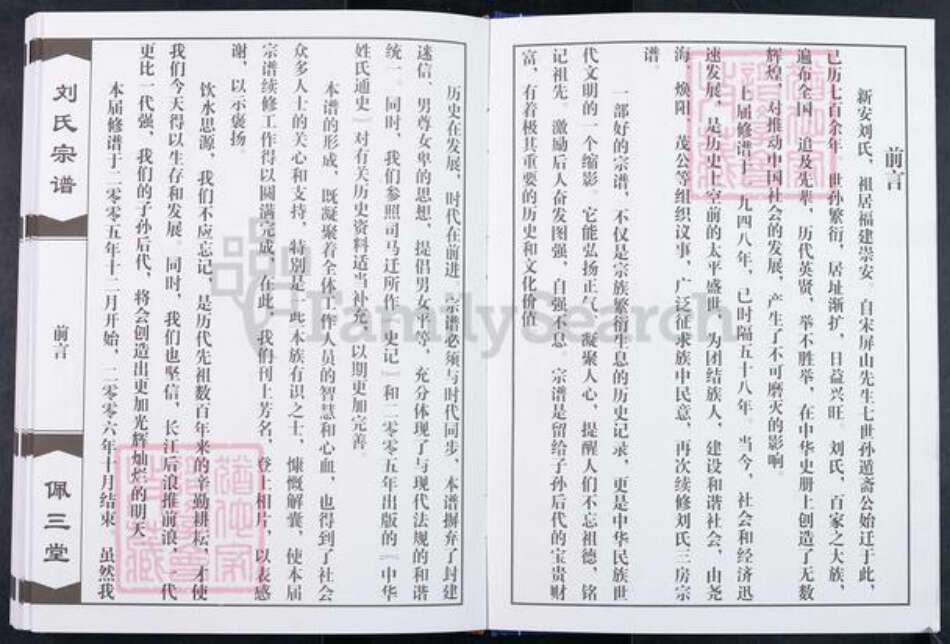 前言
新安刘氏，祖居福建崇安。自宋屏山先生七世孙遁斋公始迁于此，
已历七百余年。世孙繁衍，居址渐扩，日益兴旺。刘氏，百家之大族，
遍布全国。追及先辈，历代英贤，举不胜举，在中华史册上创造了无数
辉煌，对推动中国社会的发展，产生了不可磨灭的影响。
上届修谱于一九四八年，已时隔五十八年。当今，社会和经济迅
速发展，是历史上空前的太平盛世。为团结族人，建设和谐社会，由尧
海、焕阳、茂公等组织议事，广泛征求族中民意，再次续修刘氏三房宗
谱。
一部好的宗谱，不仅是宗族繁衍生息的历史记录，更是中华民族世
代文明的一个缩影。它能弘扬正气，凝聚人心，提醒人们不忘祖德，铭
记祖先。激励后人奋发图强，自强不息。宗谱是留给子孙后代的宝贵财
富，有着极其重要的历史和文化价值。
历史在发展，时代在前进。宗谱必须与时代同步，本谱摒弃了封建
迷信、男尊女卑的思想，提倡男女平等，充分体现了与现代法规的和谐
统一。同时，我们参照司马迁所作《史记》和二零零五年出版的《中华
姓氏通史》对有关历史资料适当补充，以期更加完善。
本谱的形成，既凝聚着全体工作人员的智慧和心血，也得到了社会
众多人士的关心和支持，特别是一些本族有识之士，慷慨解囊，使本届
宗谱续修工作得以圆满完成，在此，我们刊上芳名，登上相片，以表感
谢，以示褒扬。
饮水思源，我们不应忘记，是历代先祖数百年来的辛勤耕耘，才使
我们今天得以生存和发展。同时，我们也坚信，长江后浪推前浪，一代
更比一代强，我们的子孙后代，将会创造出更加光辉灿烂的明天。
本届修谱于二零零五年十二月开始，二零零六年十月结束。虽然我
刘氏宗谱
前言
佩三堂
FamilySearch